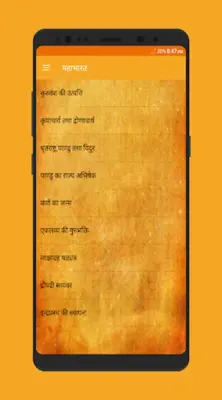 30% 8:47 PM
महाभारत
कुरुवंश की उत्पत्ति
कृपाचार्य तथा द्रोणाचार्य
धृतराष्ट्र पाण्डु तथा विदुर
पाण्डु का राज्य अभिषेक
कर्ण का जन्म
एकलव्य की गुरुभक्ति
लाक्षागृह षड्यंत्र
द्रौपदी स्वयंवर
इन्द्रप्रस्थ की स्थापना